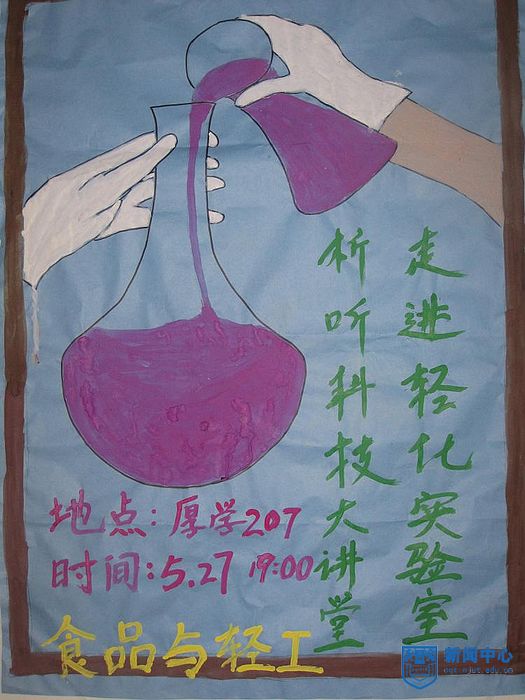 走进轻化实验室
析听科技大讲堂
地点:厚学207
时间:5.27 19:00
食品与轻工
新闻中心